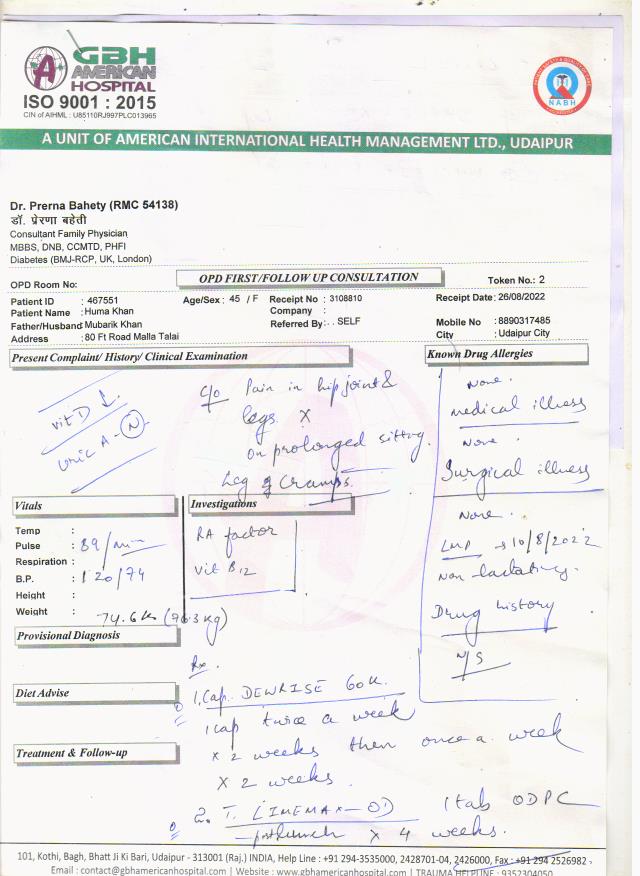 GBH
AMERICAN
HOSPITAL
ISO 9001 : 2015
CIN of AIHML : U85110RJ997PLC013965
NABH
A UNIT OF AMERICAN INTERNATIONAL HEALTH MANAGEMENT LTD., UDAIPUR
Dr. Prerna Bahety (RMC 54138)
डॉ. प्रेरणा बहेती
Consultant Family Physician
MBBS, DNB, CCMTD, PHFI
Diabetes (BMJ-RCP, UK, London)
OPD Room No:
OPD FIRST/FOLLOW UP CONSULTATION
Token No.: 2
Patient ID : 467551 Age/Sex : 45 / F Receipt No : 3108810 Receipt Date: 26/08/2022
Patient Name : Huma Khan Company :
Father/Husband: Mubarik Khan Referred By: . . SELF Mobile No : 8890317485
Address : 80 Ft Road Malla Talai City : Udaipur City
Present Complaint/ History/ Clinical Examination
Known Drug Allergies
Vit D ↓
Uric A - N
c/o Pain in hip joint &
legs X
on prolonged sitting.
Leg Cramps.
None.
medical illness
None.
Surgical illness
None.
LMP → 10/8/2022
Non lactating.
Drug history
N/S
Vitals
Temp :
Pulse : 89/min
Respiration :
B.P. : 120/74
Height :
Weight : 74.6k (76.3 kg)
Investigations
RA factor
Vit B12
Provisional Diagnosis
Rx.
Diet Advise
1. Cap. DEWRISE 60k.
1 cap twice a week
x 2 weeks then once a week
X 2 weeks.
Treatment & Follow-up
2. T. LINEMAX-OD 1 tab OD PC
-postlunch x 4 weeks.
101, Kothi, Bagh, Bhatt Ji Ki Bari, Udaipur - 313001 (Raj.) INDIA, Help Line : +91 294-3535000, 2428701-04, 2426000, Fax : +91 294 2526982
Email : contact@gbhamericanhospital.com | Website : www.gbhamericanhospital.com | TRAUMA HELPLINE : 9352304050